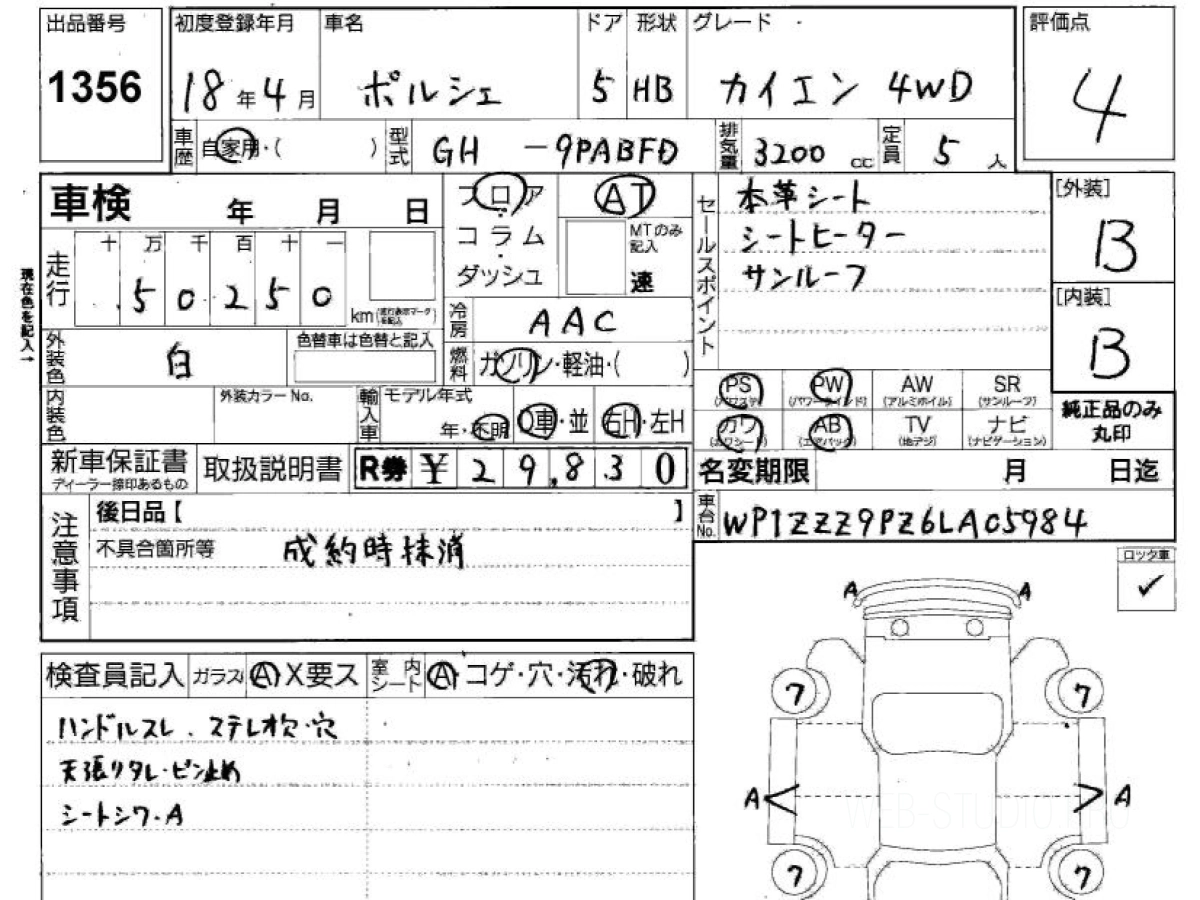 出品番号 初度登録年月 車名 ドア 形状 グレード 評価点
1356 18年4月 ポルシェ 5 HB カイエン 4WD 4
車歴 自家用・( ) 型式 GH -9PABFD 排気量 3200 cc 定員 5人
車検 年 月 日
フロア
コラム
ダッシュ
AT
MTのみ記入
速
セールスポイント
本革シート
シートヒーター
サンルーフ
[外装]
B
[内装]
B
純正品のみ
丸印
現在色を記入→
走行 十 万 千 百 十 一
50250 km
冷房 AAC
燃料 ガソリン・軽油・( )
外装色 白 色替車は色替と記入
内装色 外装カラーNo.
輸入車 モデル年式
年・不明 D車・並 右H・左H
PS (パワステ) PW (パワーウインド) AW (アルミホイル) SR (サンルーフ)
カワ (カワシート) AB (エアバック) TV (地デジ) ナビ (ナビゲーション)
新車保証書 ディーラー捺印あるもの 取扱説明書 R券 ¥29,830
名変期限 月 日迄
車台No. WP1ZZZ9PZ6LA05984
注意事項
後日品【 】
不具合箇所等 成約時抹消
ロック車
✓
検査員記入 ガラス A X要ス 室内シート A・コゲ・穴・汚れ・破れ
ハンドルスレ、ステレオ欠・穴
天張りタレ・ピン止め
シートシワ・A
A A
ワ ワ
A A
ワ ワ
WEB-STUDIO.PRO